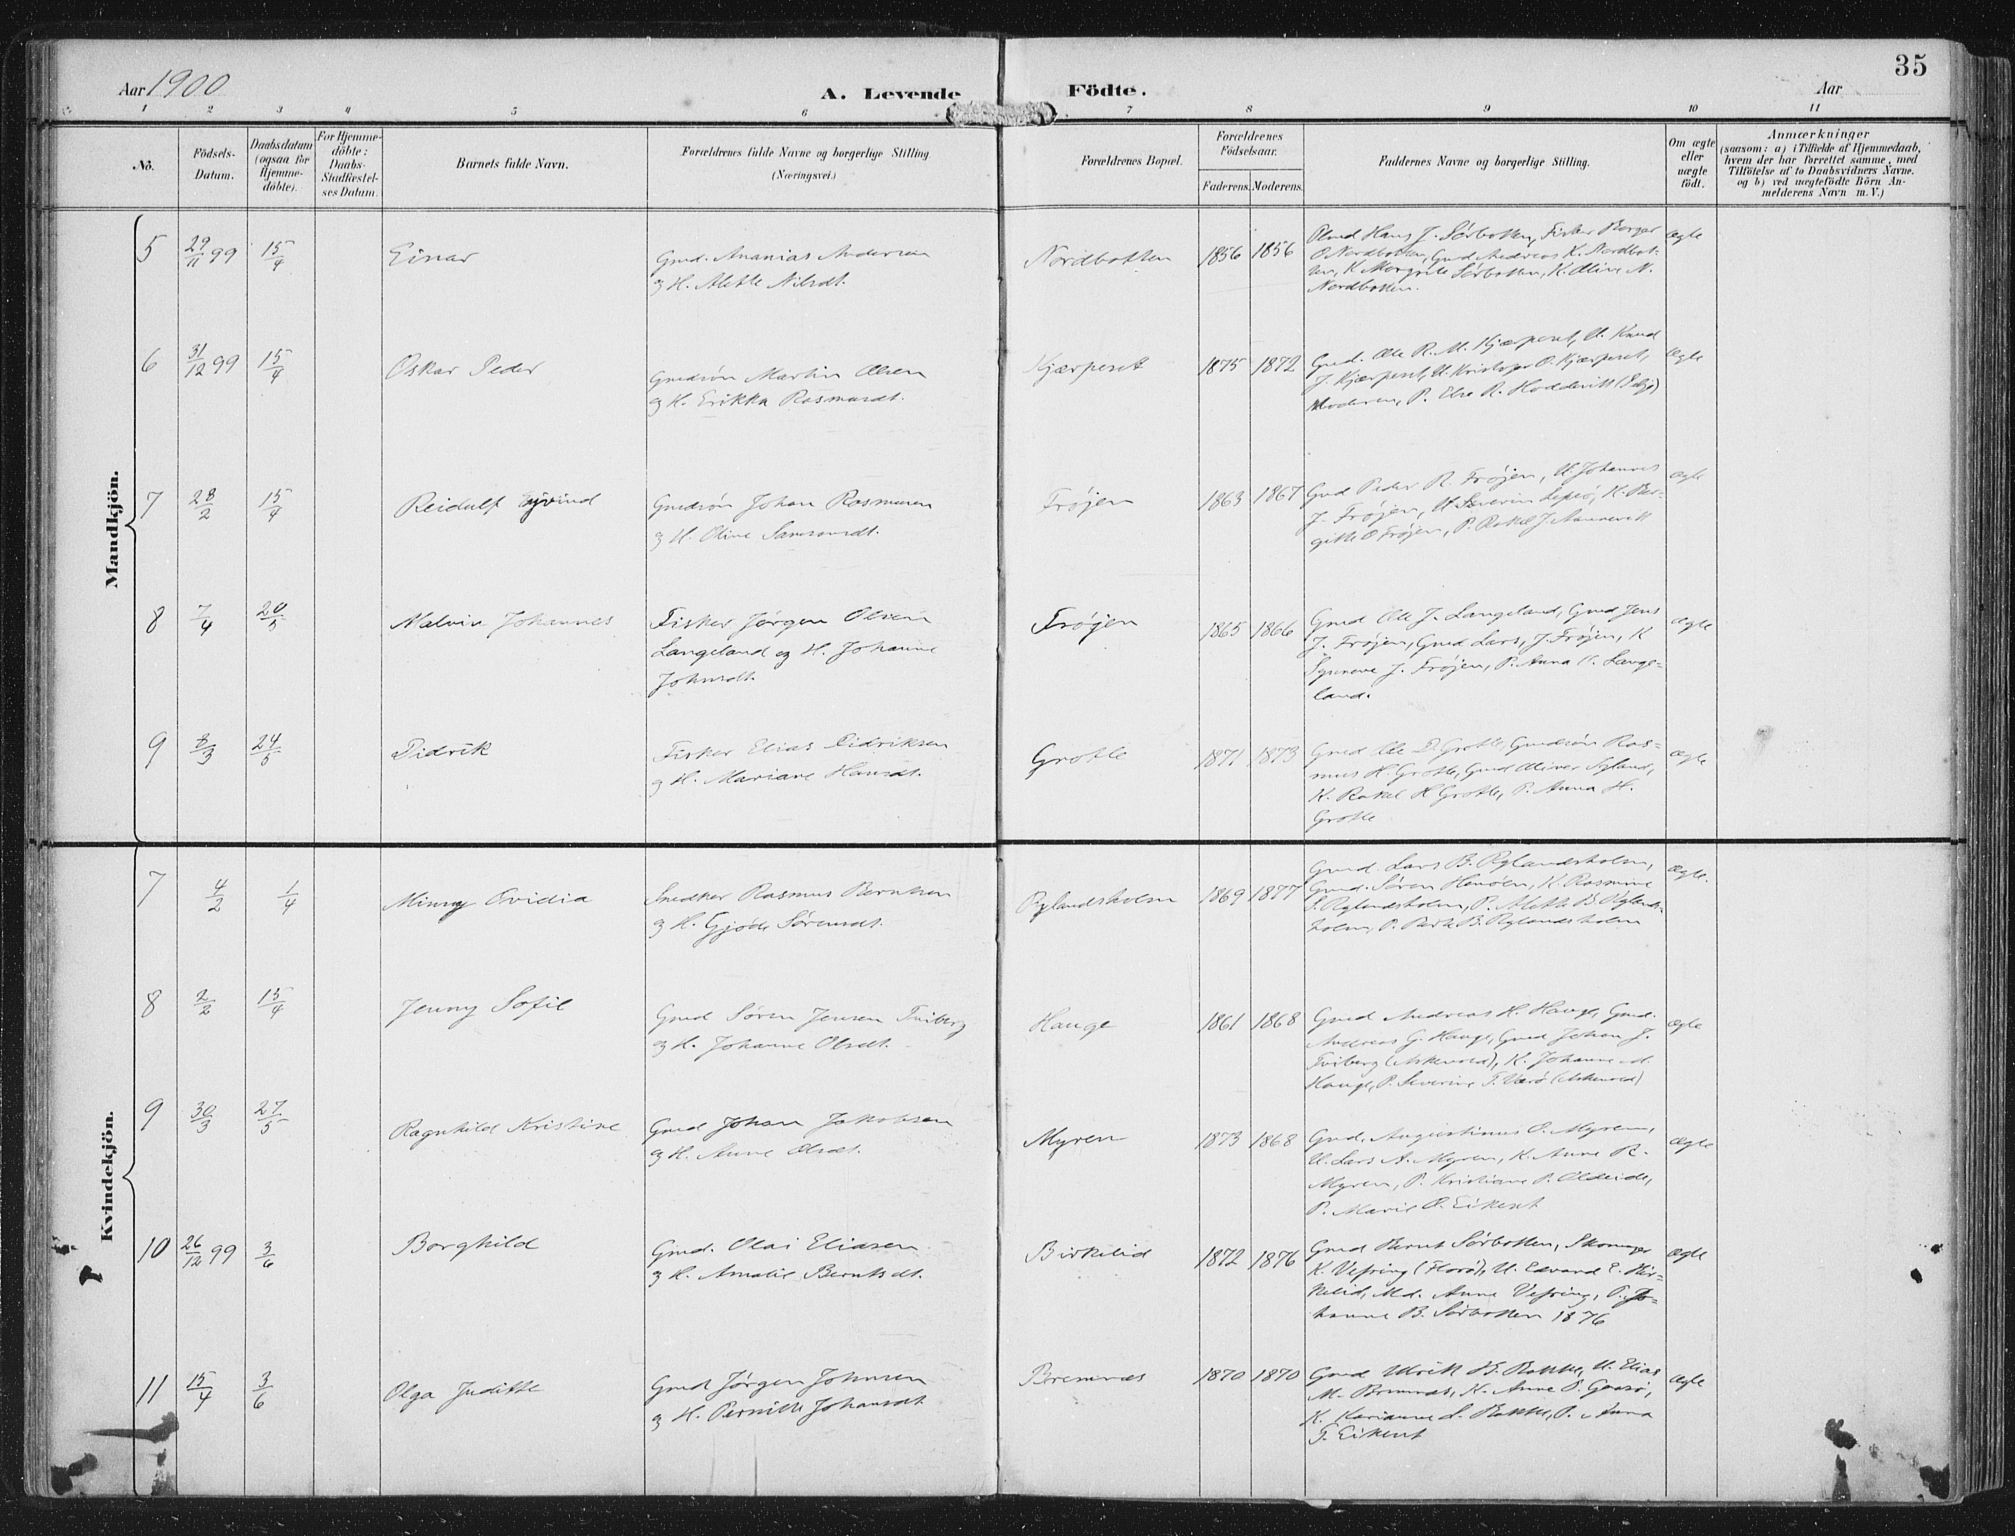 35
Aar 1900
A. Levende
Födte.
Aar
1 2 3 4 5 6 7 8 9 10 11
No.
Födsels-Datum.
Daabsdatum (ogsaa for Hjemmedöbte).
For Hjemmedöbte: Daabs-Stadfæstelses Datum.
Barnets fulde Navn.
Forældrenes fulde Navne og borgerlige Stilling
(Næringsvei.)
Forældrenes Bopæl.
Forældrenes Födselsaar.
Faderens. Moderens.
Faddernes Navne og borgerlige Stilling.
Om ægte eller uægte födt.
Anmærkninger
(saasom: a) i Tilfælde af Hjemmedaab,
hvem der har forrettet samme, med
Tilföielse af to Daabsvidners Navne.
og b) ved uægtefödte Börn An-
melderens Navn m. V.)
Mandkjön.
5 29/11 99 15/4 Einar
Gmd. Ananias Andersen
og H. Alette Nilsdt.
Nordbotten 1856 1856
Gmd Hans J. Sørbotten, Fisker Borger
O. Nordbotten, Gmd Andreas K. Nordbot-
ten, K. Margrete Sørbotten, K. Oline N.
Nordbotten.
ægte
6 31/12 99 15/4 Oskar Peder
Gmdsøn Martin Olsen
og H. Erikka Rasmusdt.
Kjærpeset 1875 1872
Gmd. Ole R. M. Kjærpeset, U. Knud
J. Kjærpeset, U. Kristofer O. Kjærpeset,
Moderen, P. Else R. Hoddevik (Selje)
ægte
7 28/2 15/4 Reidulf Øyvind
Gmdsøn Johan Rasmusen
og H. Oline Samsonsdt.
Frøjen 1863 1867
Gmd Peder R. Frøjen, U. Johannes
J. Frøjen, U. Severin, K. Ber-
gitte O Frøjen, P. Rakel J.
ægte
8 7/4 20/5 Malvin Johannes
Fisker Jørgen Olsen
Langeland og H. Johanne
Johnsdt.
Frøjen 1865 1866
Gmd Ole J. Langeland, Gmd Jens
J. Frøjen, Gmd Lars J. Frøjen, K
Synneve J. Frøjen, P. Anna O. Lange-
land.
ægte
9 8/3 24/5 Didrik
Fisker Elias Didriksen
og H. Mariane Hansdt.
Grotle 1871 1873
Gmd Ole D. Grotle, Gmdsøn Ras-
mus H. Grotle, Gmd Oliver Igland,
K. Rakel H Grotle, P. Anna H.
Grotle
ægte
Kvindekjön.
7 4/2 1/4 Minny Ovidia
Snedker Rasmus Berntsen
og H. Gjøde Sørensdt.
Rylandsholm 1869 1877
Gmd. Lars B. Rylandsholm,
Gmd. Søren Hanøen, K. Rasmine
S. Rylandsholm, P. Alette B. Rylands-
holm, P. Berte B. Rylandsholm
ægte.
8 2/2 15/4 Jenny Sofie
Gmd Søren Jensen Tviberg
og H. Johanne Olsdt.
Hauge 1861 1868
Gmd Andreas H. Hauge, Gmd.
Andreas G. Hauge, Gmd Johan J.
Tviberg (Askevold), K. Johanne A.
Hauge, P. Severine T. Værø (Askevold)
ægte
9 30/3 27/5 Ragnhild Kristine
Gmd Johan Jakobsen
og H. Anne Olsdt.
Myren 1873 1868
Gmd. Augustinus O. Myren,
U. Lars A. Myren, K. Anne R.
Myren, P. Kristiane P. Oldeide,
P. Marie O. Eikeset
ægte
10 26/12 99 3/6 Borghild
Gmd. Olai Eliasen
og H. Amalie Berntsdt.
Birkelid 1872 1876
Gmd Bernt Sørbotten, Skomager
K. Vefring (Florø), U. Edvard E. Bir-
kelid, Md. Anne Vefring, P. Jo-
hanne B. Sørbotten 1876
ægte
11 15/4 3/6 Olga Juditte
Gmd Jørgen Johnsen
og H. Pernille Johansdt.
Bremnæs 1870 1870
Gmd Ulrik H. Bakke, U. Elias
M. Bremnæs, K. Anne P. Gaasø,
K. Karianne L. Bakke, P. Anna
T. Eikeset
ægte